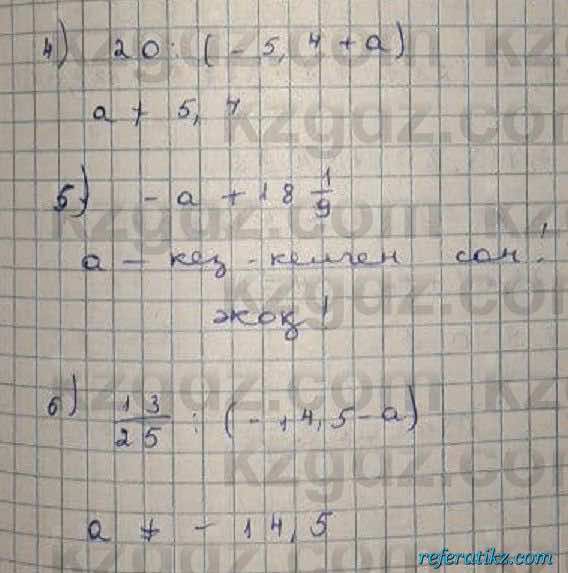 4) 20 : (-5,4 + a)
a ≠ 5,4
5) -a + 18 1/9
a - кез-келген сан!
жоқ!
6) 13/25 : (-14,5 - a)
a ≠ -14,5
kzgdz.com
referatikz.com